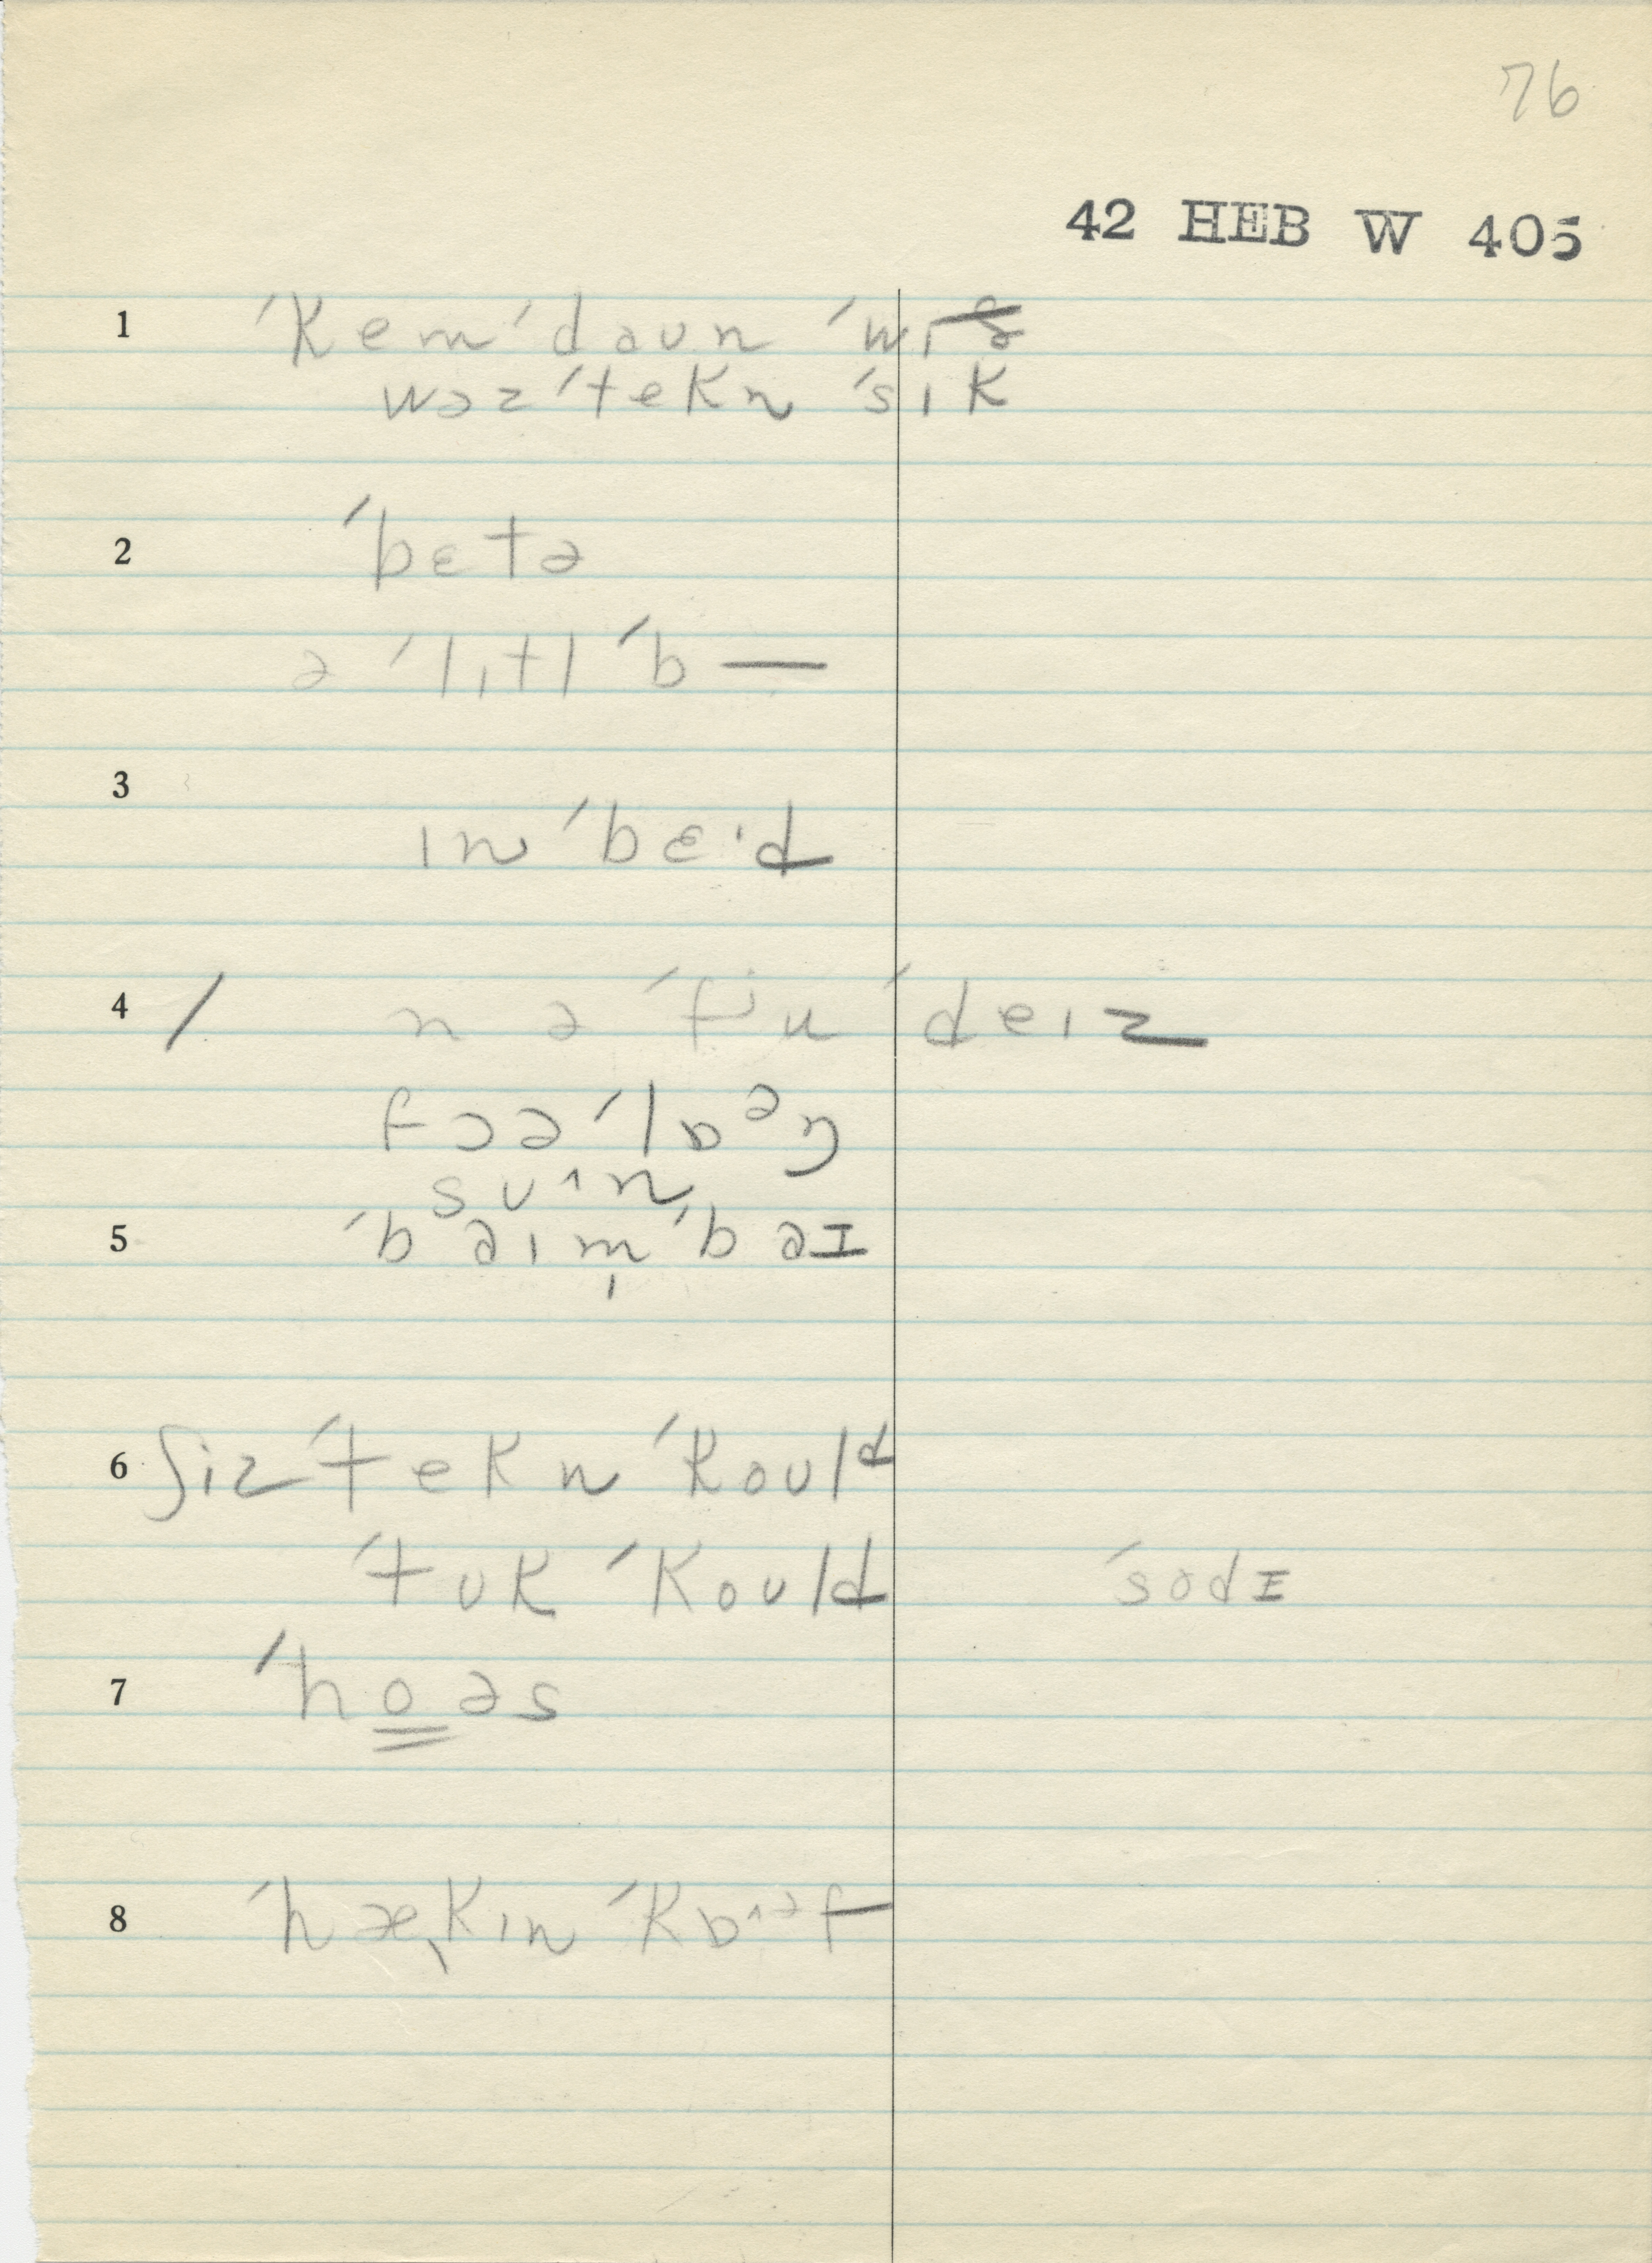 76
42 HEB W 405
1 ˈkem ˈdaun ˈwɪð
wəz ˈtekn ˈsɪk
2 ˈbɛtə
ə ˈlɪtl ˈb—
3
ɪn ˈbɛ·d
4 / n ə ˈfju ˈdeɪz
fɔə ˈlɒᵊŋ
sʊ^n
5 ˈbaɪm̩ ˈbaɪ
6 ʃiz ˈtekn ˈkould
ˈtʊk ˈkould ˈsodɪ
7 ˈhoəs
8 ˈhækɪn ˈkɒ^ᵊf